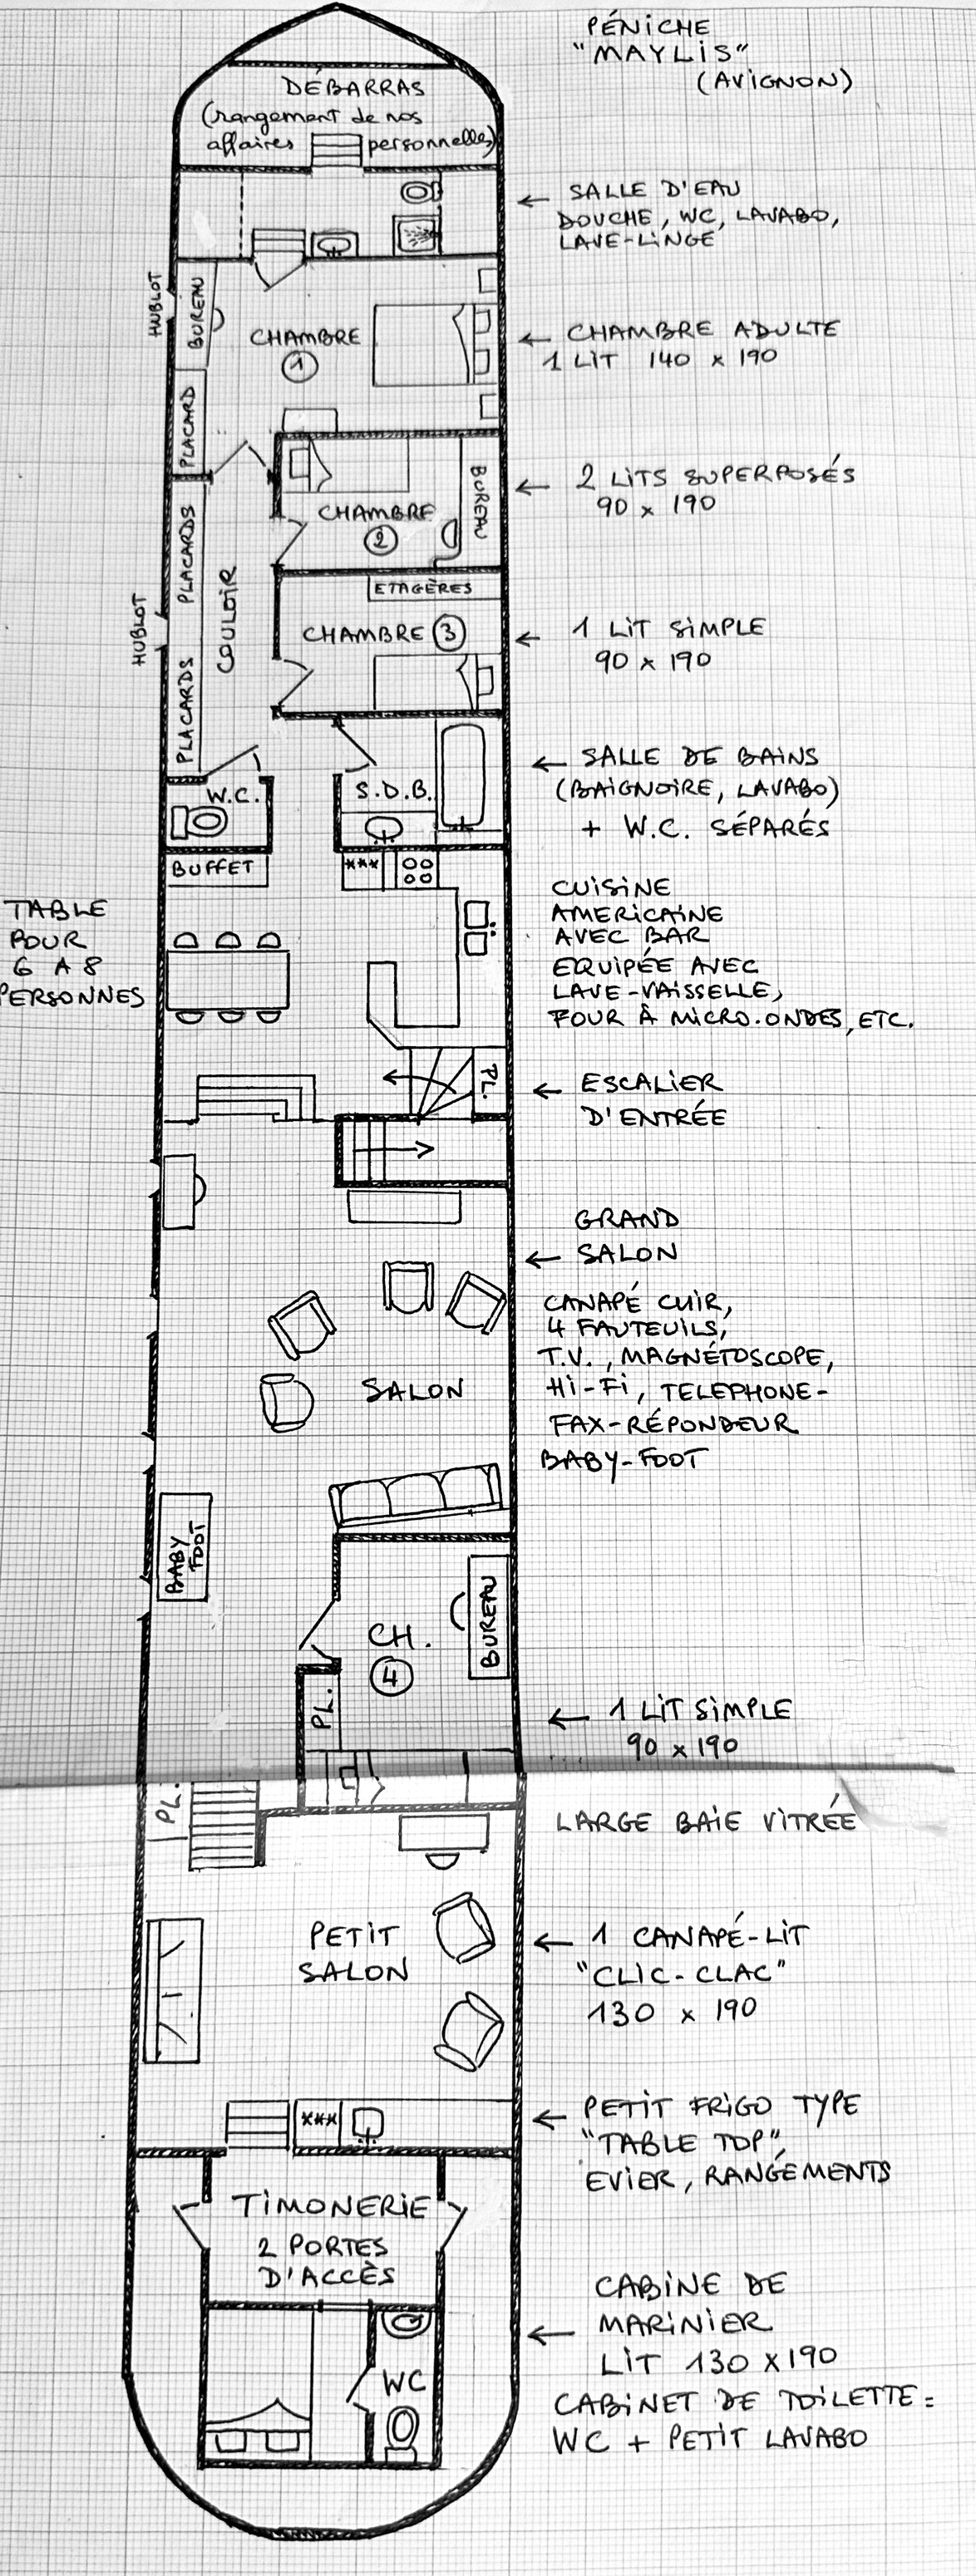 PÉNICHE
"MAYLIS"
(AVIGNON)
DÉBARRAS
(rangement de nos
affaires personnelles)
← SALLE D'EAU
DOUCHE, WC, LAVABO,
LAVE-LINGE
HUBLOT
BUREAU
CHAMBRE
1
← CHAMBRE ADULTE
1 LIT 140 x 190
PLACARD
← 2 LITS SUPERPOSÉS
90 x 190
CHAMBRE
2
BUREAU
PLACARDS
COULOIR
ETAGÈRES
HUBLOT
CHAMBRE 3
← 1 LIT SIMPLE
90 x 190
PLACARDS
W.C.
S.D.B.
← SALLE DE BAINS
(BAIGNOIRE, LAVABO)
+ W.C. SÉPARÉS
BUFFET
***
TABLE
POUR
6 A 8
PERSONNES
CUISINE
AMERICAINE
AVEC BAR
EQUIPÉE AVEC
LAVE-VAISSELLE,
FOUR À MICRO.ONDES, ETC.
PL.
← ESCALIER
D'ENTRÉE
GRAND
← SALON
CANAPÉ CUIR,
4 FAUTEUILS,
T.V., MAGNÉTOSCOPE,
Hi-Fi, TELEPHONE-
FAX-RÉPONDEUR
BABY-FOOT
SALON
BABY
FOOT
CH.
4
BUREAU
PL.
← 1 LIT SIMPLE
90 x 190
PL.
LARGE BAIE VITRÉE
PETIT
SALON
← 1 CANAPÉ-LIT
"CLIC-CLAC"
130 x 190
***
← PETIT FRIGO TYPE
"TABLE TOP",
EVIER, RANGEMENTS
TIMONERIE
2 PORTES
D'ACCÈS
WC
CABINE DE
← MARINIER
LIT 130 x 190
CABINET DE TOILETTE =
WC + PETIT LAVABO